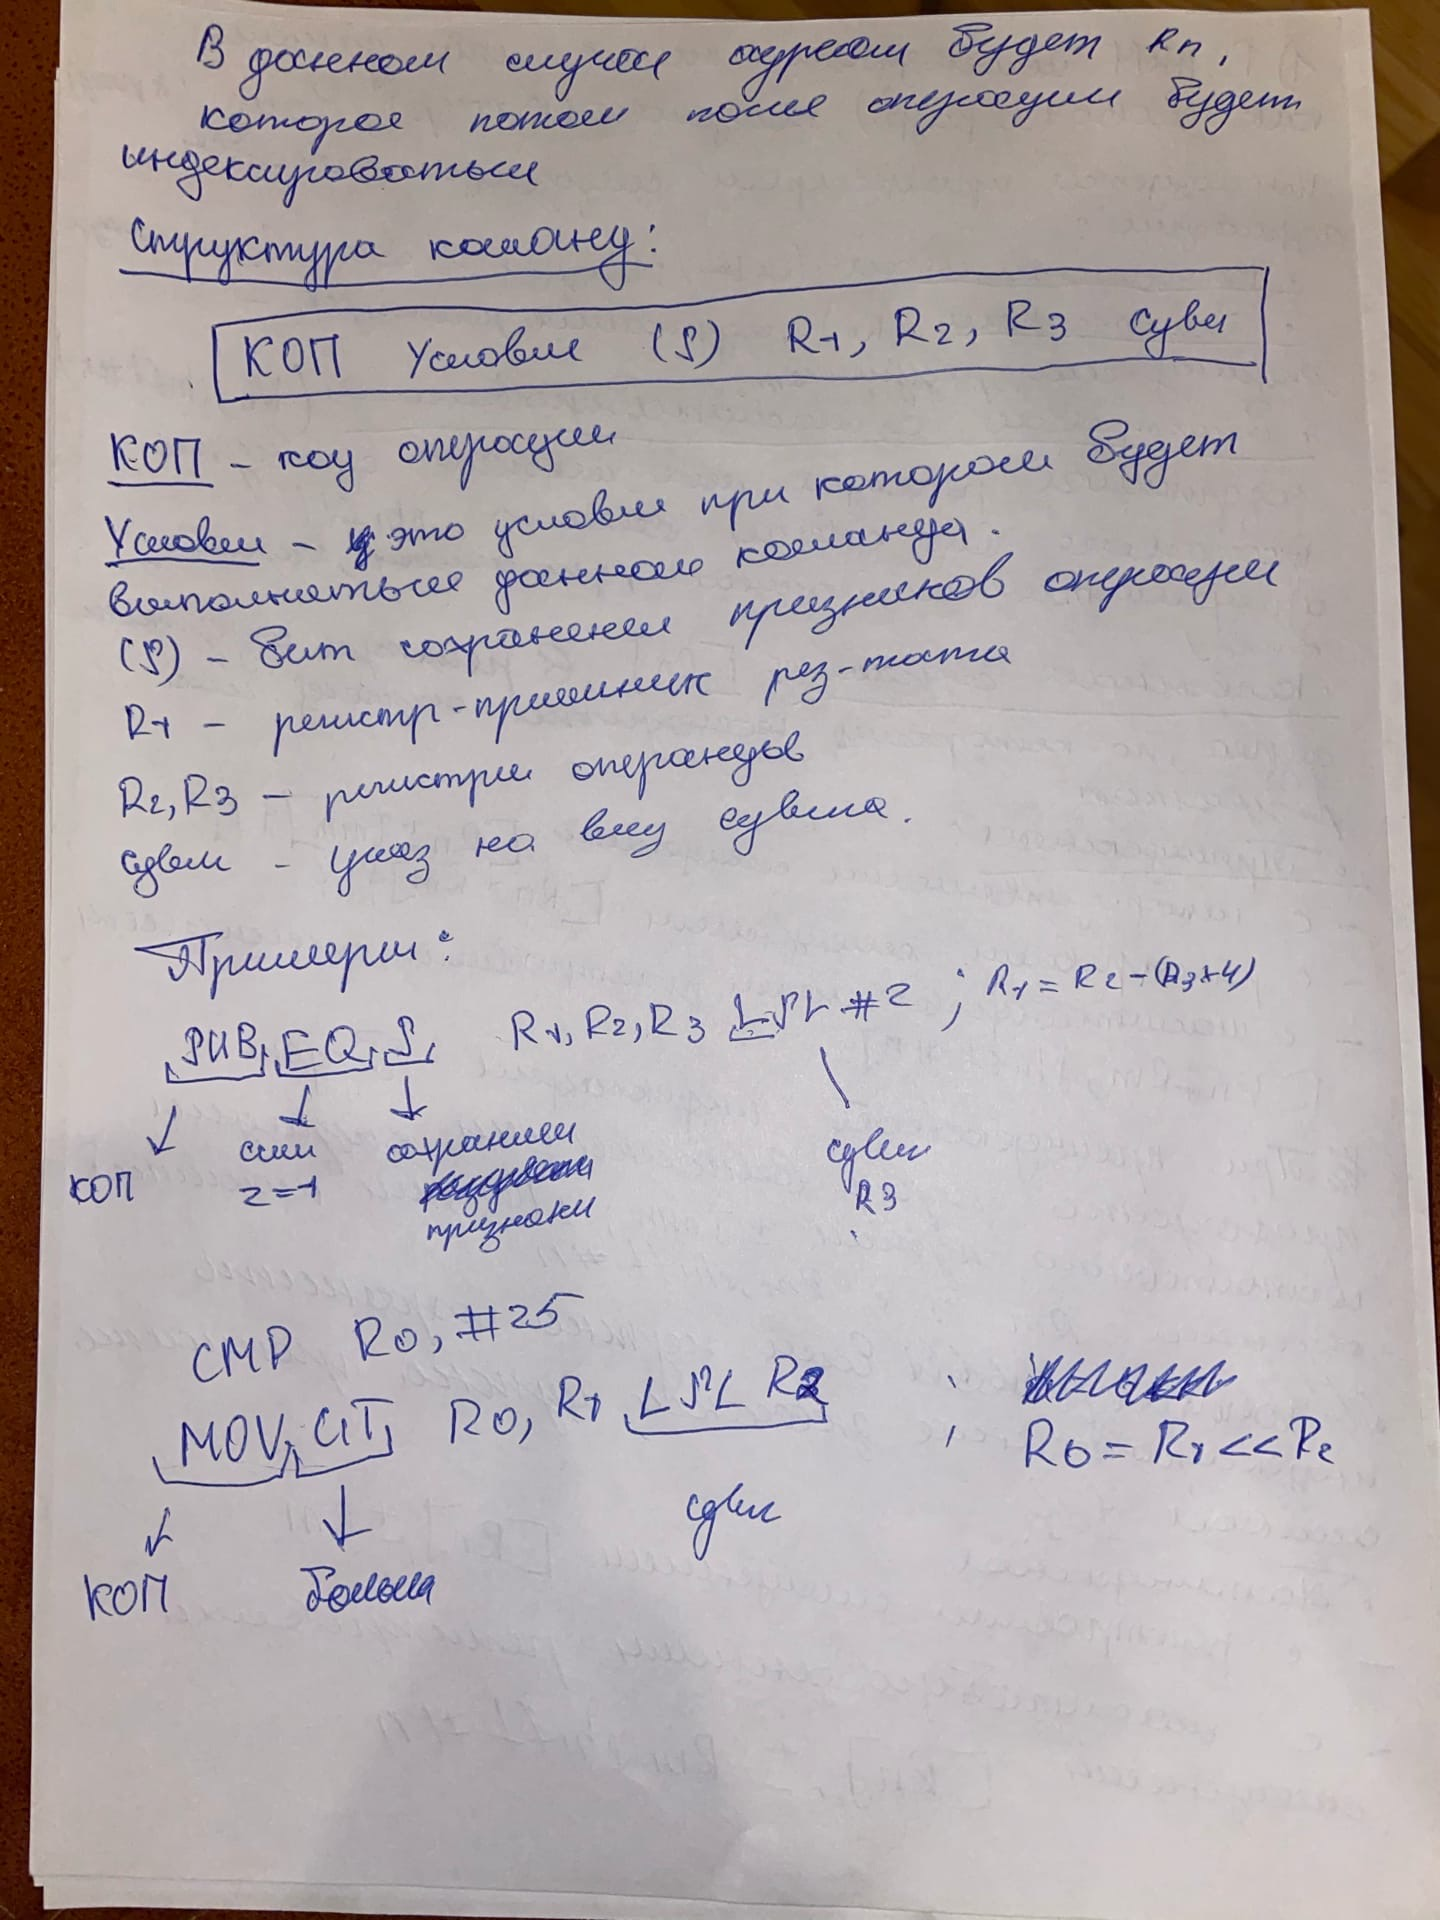 В данном случае адресом будет Rn,
которое потом после операции будет
индексироваться
Структура команд:
КОП Условие (S) R1, R2, R3 сдвиг
КОП - код операции
Условие - это условие при котором будет
выполняться данная команда.
(S) - бит сохранения признаков операции
R1 - регистр-приемник рез-тата
R2, R3 - регистры операндов
сдвиг - указ на вид сдвига.
Примеры:
SUB EQ S R1, R2, R3 LSL #2 ; R1 = R2 - (R3*4)
КОП если сохранили сдвиг
z=1 признаки R3
CMP R0, #25
MOV GT R0, R1 LSL R2 ; R0 = R1 << R2
КОП больше сдвиг